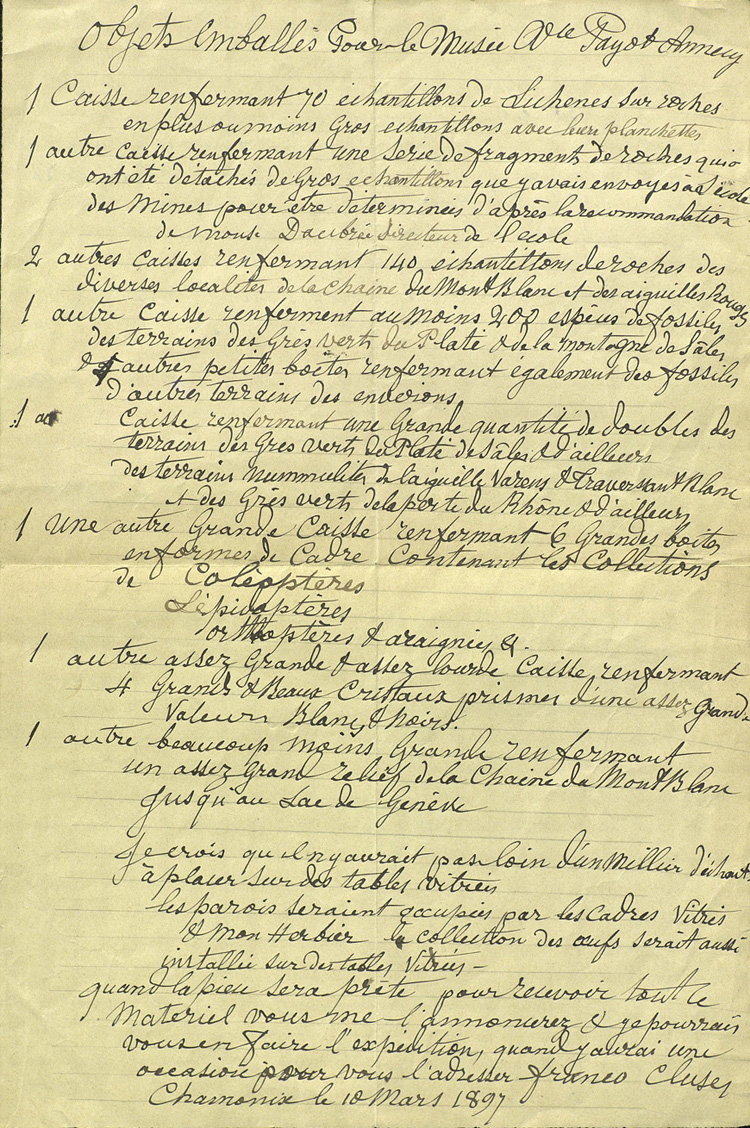 Objets Emballés Pour le Musée Vce Payot Annecy
1 Caisse renfermant 70 échantillons de Lichenes sur roches
en plus ou moins Gros echantillons avec leurs planchettes
1 autre caisse renfermant une Serie de fragments de roches qui
ont été détachés de Gros echantillons que j'avais envoyés à l'école
des Mines pour être determinées d'après la recommandation
de monsr Daubrée directeur de l'ecole
2 autres caisses renfermant 140 echantillons de roches des
diverses localités de la chaine du Mont Blanc et des aiguilles Rouges
1 autre Caisse renferment au moins 200 espèces de fossiles
des terrains des Grès verts du Platé & de la montagne de Sâles
& autres petites boîtes renfermant également des fossiles
d'autres terrains des environs
1 Caisse renfermant une Grande quantité de doubles des
terrains des Grès verts du Platé de Sâles & d'ailleurs
des terrains Nummulites de l'aiguille Varens & Traversant Blanc
et des Grès verts de la perte du Rhône & d'ailleurs
1 Une autre Grande Caisse renfermant 6 Grandes boîtes
en formes de Cadre Contenant les Collections
de Coléoptères
Lépidoptères
orthoptères & araignées &.
1 autre assez Grande & assez lourde Caisse renfermant
4 Grands & Beaux Cristaux prismes d'une assez Grande
Valeur Blancs & Noirs.
1 autre beaucoup moins Grande renfermant
un assez Grand relief de la Chaine du Mont Blanc
Jusqu'au Lac de Genève
Je crois qu'il n'y aurait pas loin d'un Millier d'échant.
à placer sur des tables vitrées
les parois seraient occupées par les Cadres Vitrés
& Mon Herbier la collection des œufs serait aussi
installée sur des tables Vitrées -
quand la pièce sera prête pour recevoir tout le
Materiel vous me l'annoncerez & je pourrais
vous en faire l'expedition, quand j'aurai une
occasion pour vous l'adresser franco Cluses
Chamonix le 10 Mars 1897